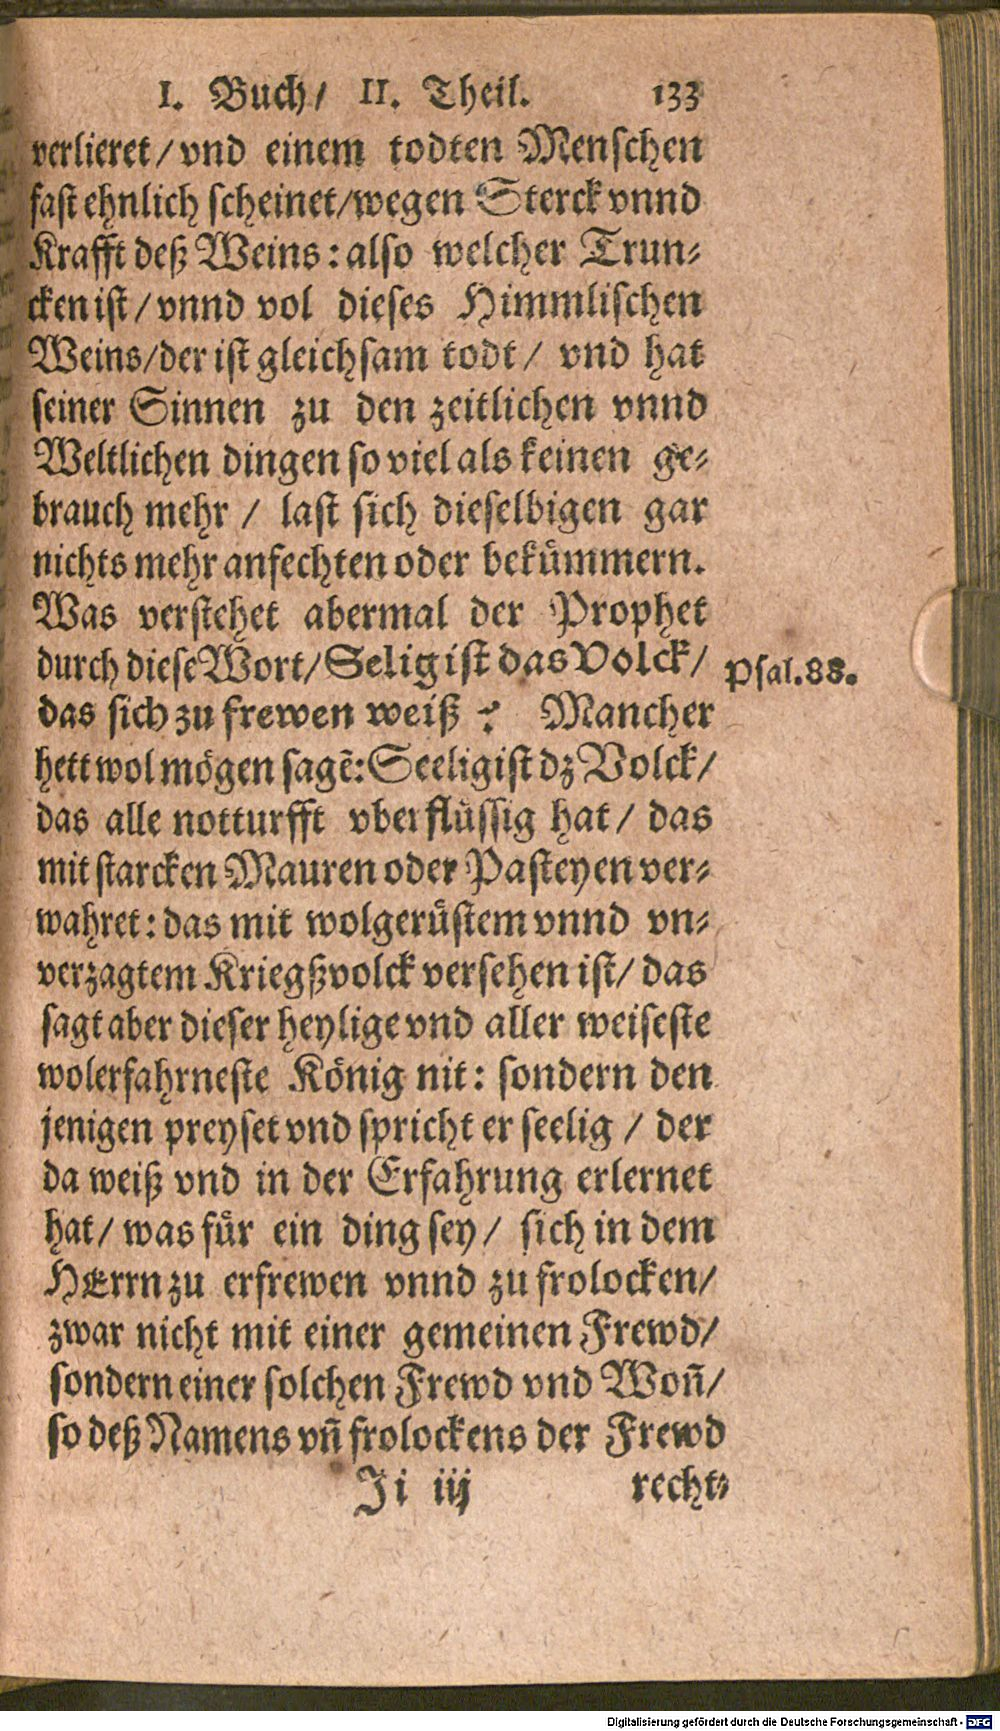 I. Buch/ II. Theil. 133
verlieret/vnd einem todten Menschen
fast ehnlich scheinet/wegen Sterck vnnd
Krafft deß Weins: also welcher Trun-
cken ist/vnnd vol dieses Himmlischen
Weins/der ist gleichsam todt/ vnd hat
seiner Sinnen zu den zeitlichen vnnd
Weltlichen dingen so viel als keinen ge-
brauch mehr / last sich dieselbigen gar
nichts mehr anfechten oder bekümmern.
Was verstehet abermal der Prophet
durch diese Wort/Selig ist das Volck/
Psal.88.
das sich zu frewen weiß ? Mancher
hett wol mögen sagē: Seelig ist dz Volck/
das alle notturfft vberflüssig hat/ das
mit starcken Mauren oder Pasteyen ver-
wahret: das mit wolgerüstem vnnd vn-
verzagtem Kriegßvolck versehen ist/ das
sagt aber dieser heylige vnd aller weiseste
wolerfahrneste König nit: sondern den
jenigen preyset vnd spricht er seelig / der
da weiß vnd in der Erfahrung erlernet
hat/ was für ein ding sey/ sich in dem
HErrn zu erfrewen vnnd zu frolocken/
zwar nicht mit einer gemeinen Frewd/
sondern einer solchen Frewd vnd Woñ/
so deß Namens vñ frolockens der Frewd
Ji iij recht-
Digitalisierung gefördert durch die Deutsche Forschungsgemeinschaft - DFG